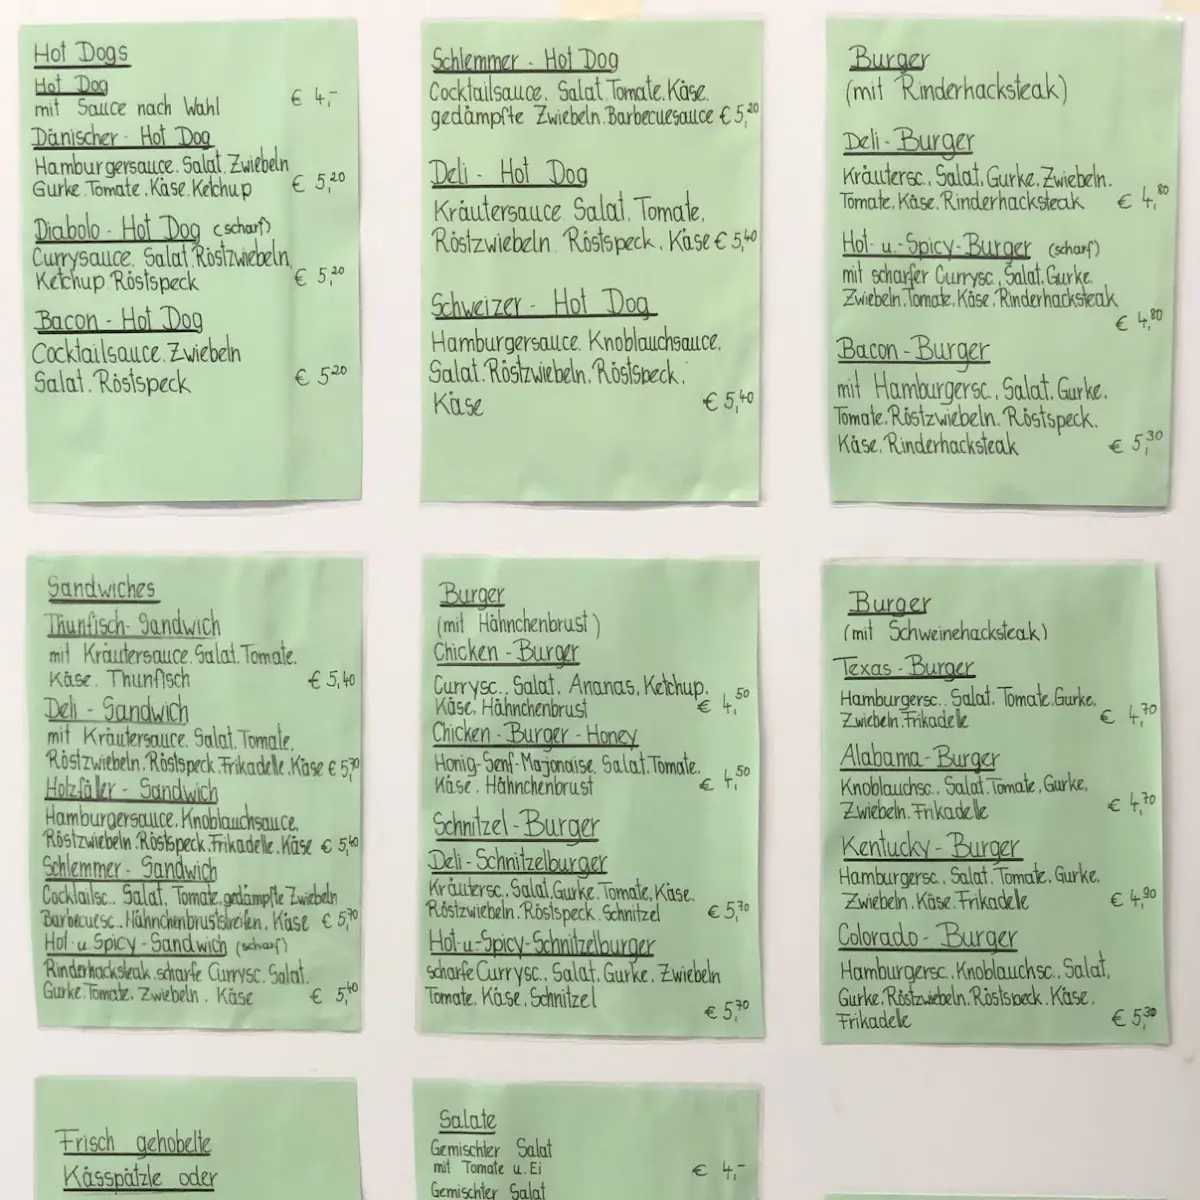 Hot Dogs
Hot Dog
mit Sauce nach Wahl € 4,-
Dänischer - Hot Dog
Hamburgersauce. Salat. Zwiebeln
Gurke. Tomate. Käse. Ketchup € 5,20
Diabolo - Hot Dog (scharf)
Currysauce. Salat. Röstzwiebeln,
Ketchup. Röstspeck € 5,20
Bacon - Hot Dog
Cocktailsauce. Zwiebeln
Salat. Röstspeck € 5 20
Schlemmer - Hot Dog
Cocktailsauce. Salat. Tomate. Käse.
gedämpfte Zwiebeln. Barbecuesauce € 5,20
Deli - Hot Dog
Kräutersauce. Salat. Tomate.
Röstzwiebeln. Röstspeck. Käse € 5,40
Schweizer - Hot Dog
Hamburgersauce. Knoblauchsauce.
Salat. Röstzwiebeln. Röstspeck.
Käse € 5,40
Burger
(mit Rinderhacksteak)
Deli - Burger
Kräutersc., Salat. Gurke, Zwiebeln.
Tomate. Käse. Rinderhacksteak € 4,80
Hot- u- Spicy- Burger (scharf)
mit scharfer Currysc., Salat. Gurke.
Zwiebeln. Tomate. Käse. Rinderhacksteak
€ 4,80
Bacon - Burger
mit Hamburgersc., Salat. Gurke.
Tomate. Röstzwiebeln. Röstspeck.
Käse. Rinderhacksteak € 5,30
Sandwiches
Thunfisch- Sandwich
mit Kräutersauce. Salat. Tomate.
Käse. Thunfisch € 5,40
Deli - Sandwich
mit Kräutersauce. Salat. Tomate.
Röstzwiebeln. Röstspeck. Frikadelle. Käse € 5,70
Holzfäller - Sandwich
Hamburgersauce. Knoblauchsauce.
Röstzwiebeln. Röstspeck. Frikadelle. Käse € 5,40
Schlemmer - Sandwich
Cocktailsc.. Salat. Tomate. gedämpfte Zwiebeln
Barbecuesc.. Hähnchenbruststreifen. Käse € 5,70
Hot- u. Spicy - Sandwich (scharf)
Rinderhacksteak. scharfe Currysc. Salat.
Gurke. Tomate. Zwiebeln. Käse € 5,40
Burger
(mit Hähnchenbrust)
Chicken - Burger
Currysc.. Salat. Ananas. Ketchup.
Käse. Hähnchenbrust € 4,50
Chicken - Burger - Honey
Honig-Senf-Majonaise. Salat. Tomate.
Käse. Hähnchenbrust € 4,50
Schnitzel - Burger
Deli - Schnitzelburger
Kräutersc.. Salat. Gurke. Tomate. Käse.
Röstzwiebeln. Röstspeck. Schnitzel € 5,70
Hot-u-Spicy-Schnitzelburger
scharfe Currysc.. Salat. Gurke. Zwiebeln
Tomate. Käse. Schnitzel
€ 5,70
Burger
(mit Schweinehacksteak)
Texas - Burger
Hamburgersc.. Salat. Tomate. Gurke.
Zwiebeln. Frikadelle € 4,70
Alabama - Burger
Knoblauchsc.. Salat. Tomate. Gurke.
Zwiebeln. Frikadelle € 4,70
Kentucky - Burger
Hamburgersc.. Salat. Tomate. Gurke.
Zwiebeln. Käse. Frikadelle € 4,90
Colorado - Burger
Hamburgersc.. Knoblauchsc.. Salat.
Gurke. Röstzwiebeln. Röstspeck. Käse.
Frikadelle € 5,30
Frisch gehobelte
Kässpätzle oder
Salate
Gemischter Salat
mit Tomate u. Ei € 4,-
Gemischter Salat